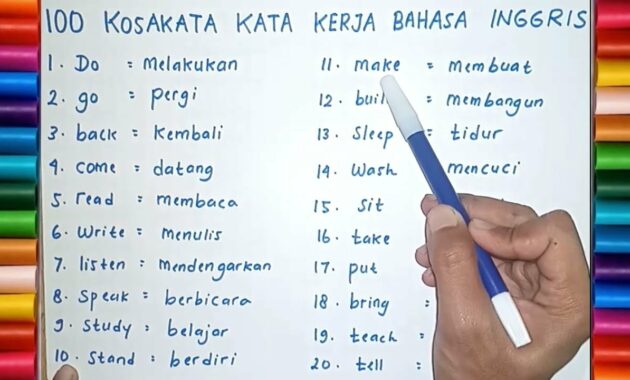 100 KOSAKATA KATA KERJA BAHASA INGGRIS
1. Do = melakukan
2. go = pergi
3. back = Kembali
4. come = datang
5. read = membaca
6. Write = menulis
7. listen = mendengarkan
8. Speak = berbicara
9. Study = belajar
10. Stand = berdiri
11. make = membuat
12. buil = membangun
13. Sleep = tidur
14. Wash mencuci
15. Sit
16. take
17. put
18. bring =
19. teach =
20. tell =